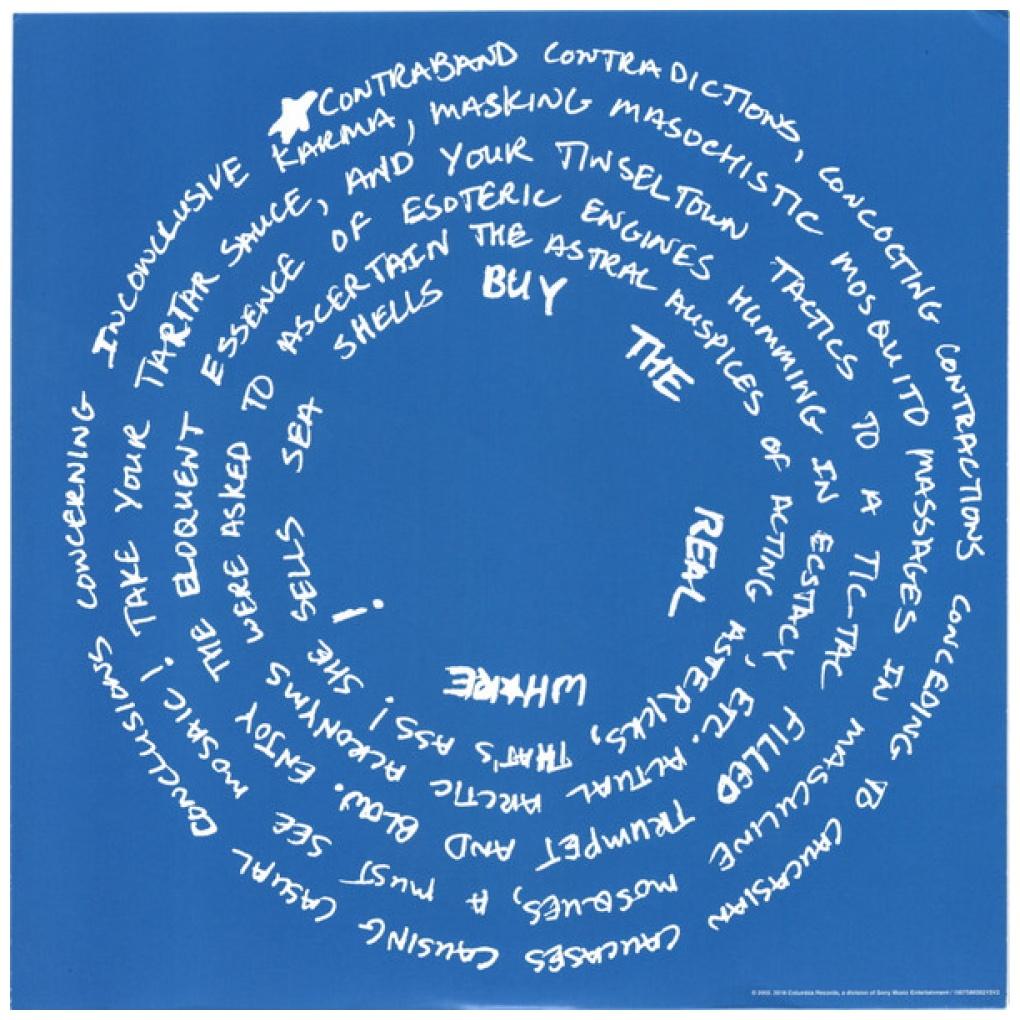 CONTRABAND CONTRADICTIONS, CONCOCTING CONTRACTIONS CONCEDING TO CAUCASIAN CAUCASES CAUSING CASUAL CONCLUSIONS CONCERNING INCONCLUSIVE
KARMA, MASKING MASOCHISTIC MOSQUITO MASSAGES IN MASCULINE MOSQUES, A MUST SEE MOSAIC! TAKE YOUR TARTAR SAUCE,
AND YOUR TINSELTOWN TACTICS TO A TIC-TAC FILLED TRUMPET AND BLOW. ENJOY THE ELOQUENT ESSENCE
OF ESOTERIC ENGINES HUMMING IN ECSTACY, ETC. ACTUAL ARCTIC ACRONYMS WERE ASKED TO ASCERTAIN
THE ASTRAL AUSPICES OF ACTING ASTERICKS, THAT'S ASS! SHE SELLS SEA SHELLS
BUY THE REAL WH★RE!
© 2002, 2018 Columbia Records, a division of Sony Music Entertainment /